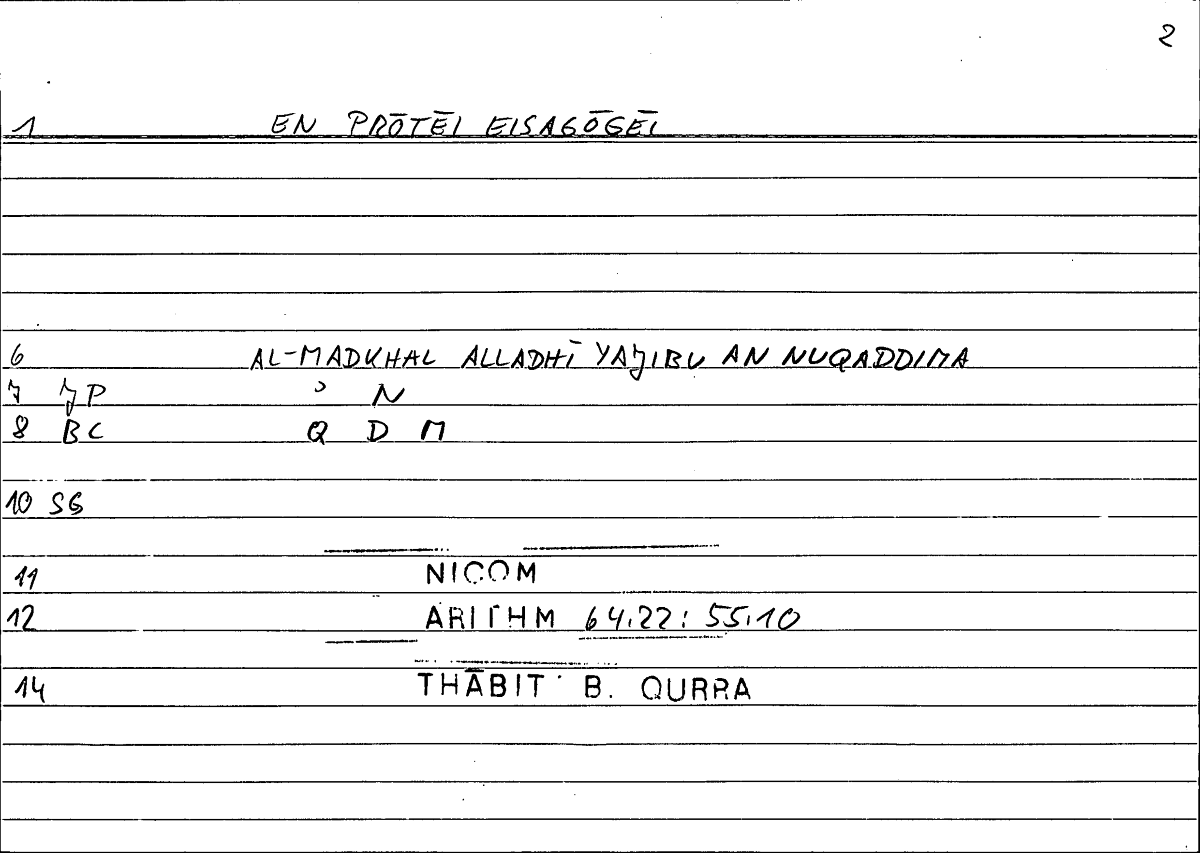 2
1 EN PRŌTĒI EISAGŌGĒI
6 AL-MADKHAL ALLADHĪ YAJIBU AN NUQADDIMA
7 JP ʾ N
8 BC Q D M
10 SG
11 NICOM
12 ARITHM 64.22: 55.10
14 THĀBIT B. QURRA